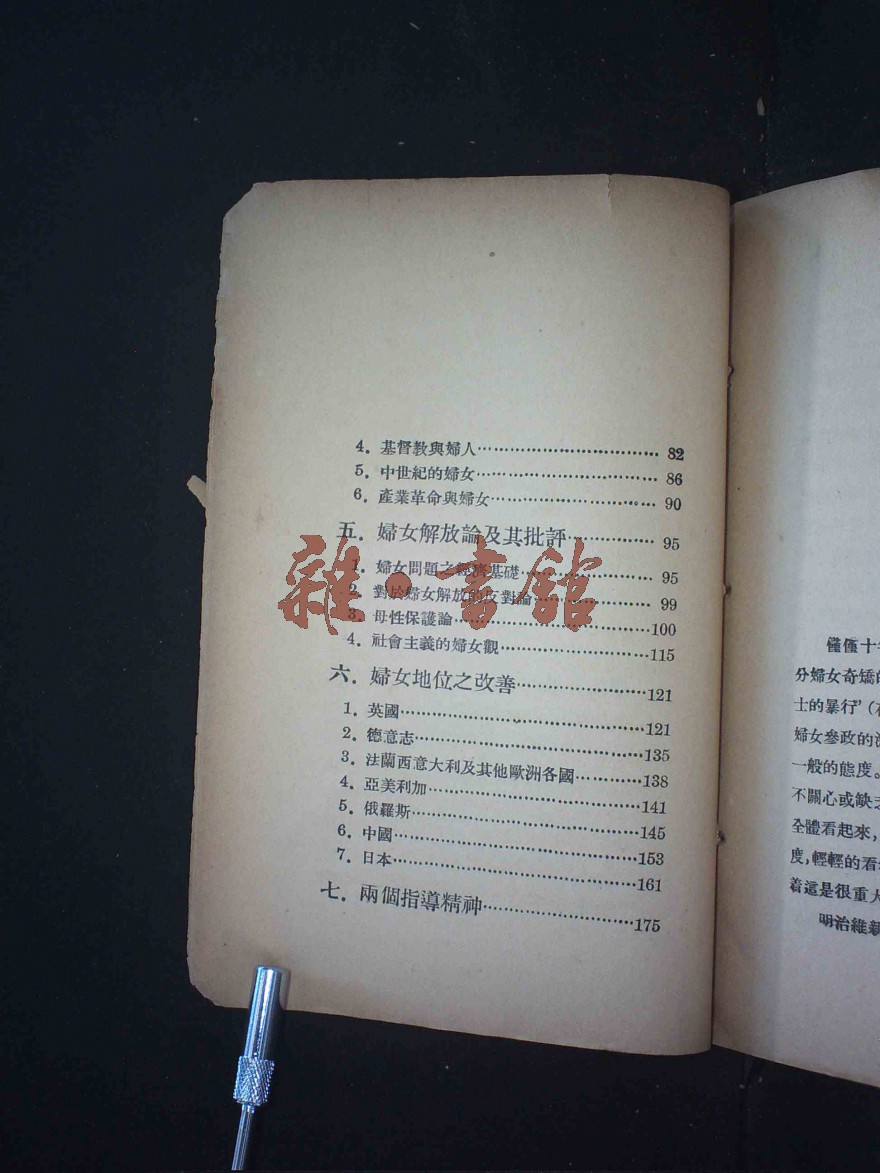 4. 基督教與婦人 82
5. 中世紀的婦女 86
6. 產業革命與婦女 90
五. 婦女解放論及其批評 95
1. 婦女問題之經濟基礎 95
2. 對於婦女解放的反對論 99
3. 母性保護論 100
4. 社會主義的婦女觀 115
六. 婦女地位之改善 121
1. 英國 121
2. 德意志 135
3. 法蘭西意大利及其他歐洲各國 138
4. 亞美利加 141
5. 俄羅斯 145
6. 中國 153
7. 日本 161
七. 兩個指導精神 175
雜·書館
僅僅十
分婦女奇矯的
士的暴行”(
婦女參政的
一般的態度。
不關心或缺
全體看起來,
度,輕輕的看
着這是很重大
明治維新